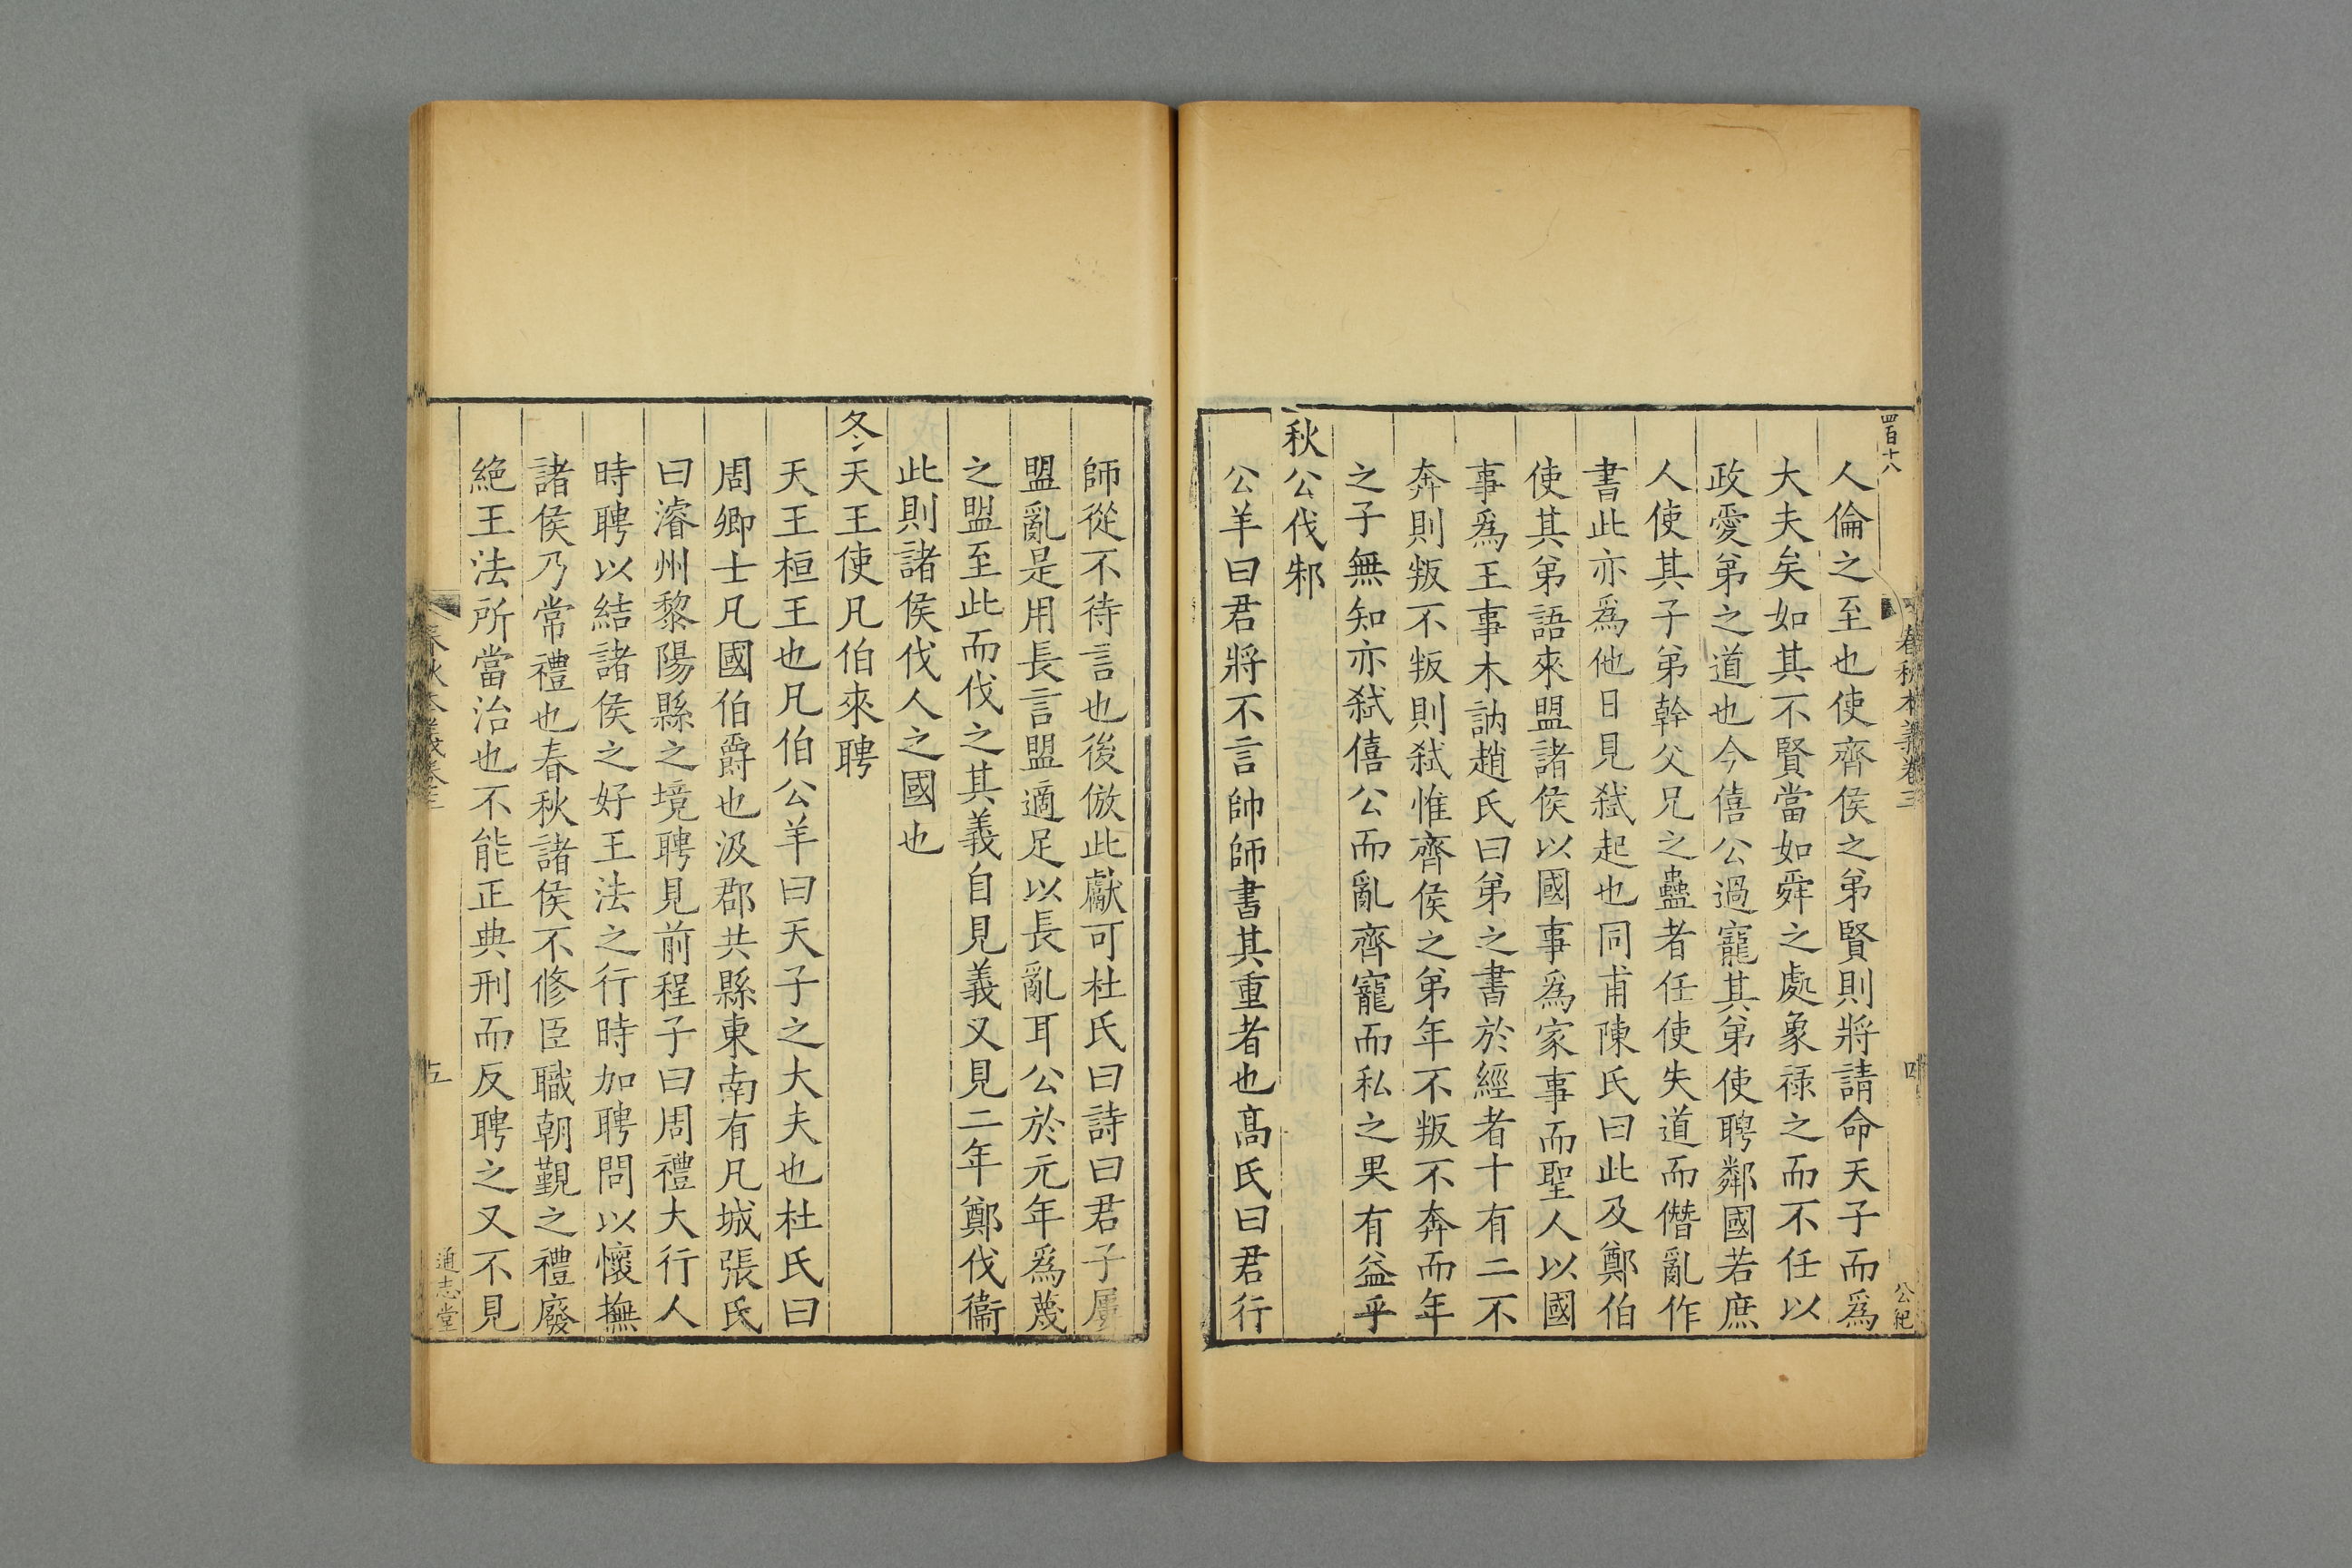 四百十八
春秋本義卷三
四
公紀
人倫之至也使齊侯之弟賢則將請命天子而爲
大夫矣如其不賢當如舜之處象祿之而不任以
政愛弟之道也今僖公過寵其弟使聘鄰國若庶
人使其子弟幹父兄之蠱者任使失道而僭亂作
書此亦爲他日見弑起也同甫陳氏曰此及鄭伯
使其弟語來盟諸侯以國事爲家事而聖人以國
事爲王事木訥趙氏曰弟之書於經者十有二不
奔則叛不叛則弑惟齊侯之弟年不叛不奔而年
之子無知亦弑僖公而亂齊寵而私之果有益乎
秋公伐邾
公羊曰君將不言帥師書其重者也髙氏曰君行
師從不待言也後倣此獻可杜氏曰詩曰君子屢
盟亂是用長言盟適足以長亂耳公於元年爲蔑
之盟至此而伐之其義自見義又見二年鄭伐衞
此則諸侯伐人之國也
冬天王使凡伯來聘
天王桓王也凡伯公羊曰天子之大夫也杜氏曰
周卿士凡國伯爵也汲郡共縣東南有凡城張氏
曰濬州黎陽縣之境聘見前程子曰周禮大行人
時聘以結諸侯之好王法之行時加聘問以懷撫
諸侯乃常禮也春秋諸侯不修臣職朝覲之禮廢
絶王法所當治也不能正典刑而反聘之又不見
春秋本義卷三
五
通志堂